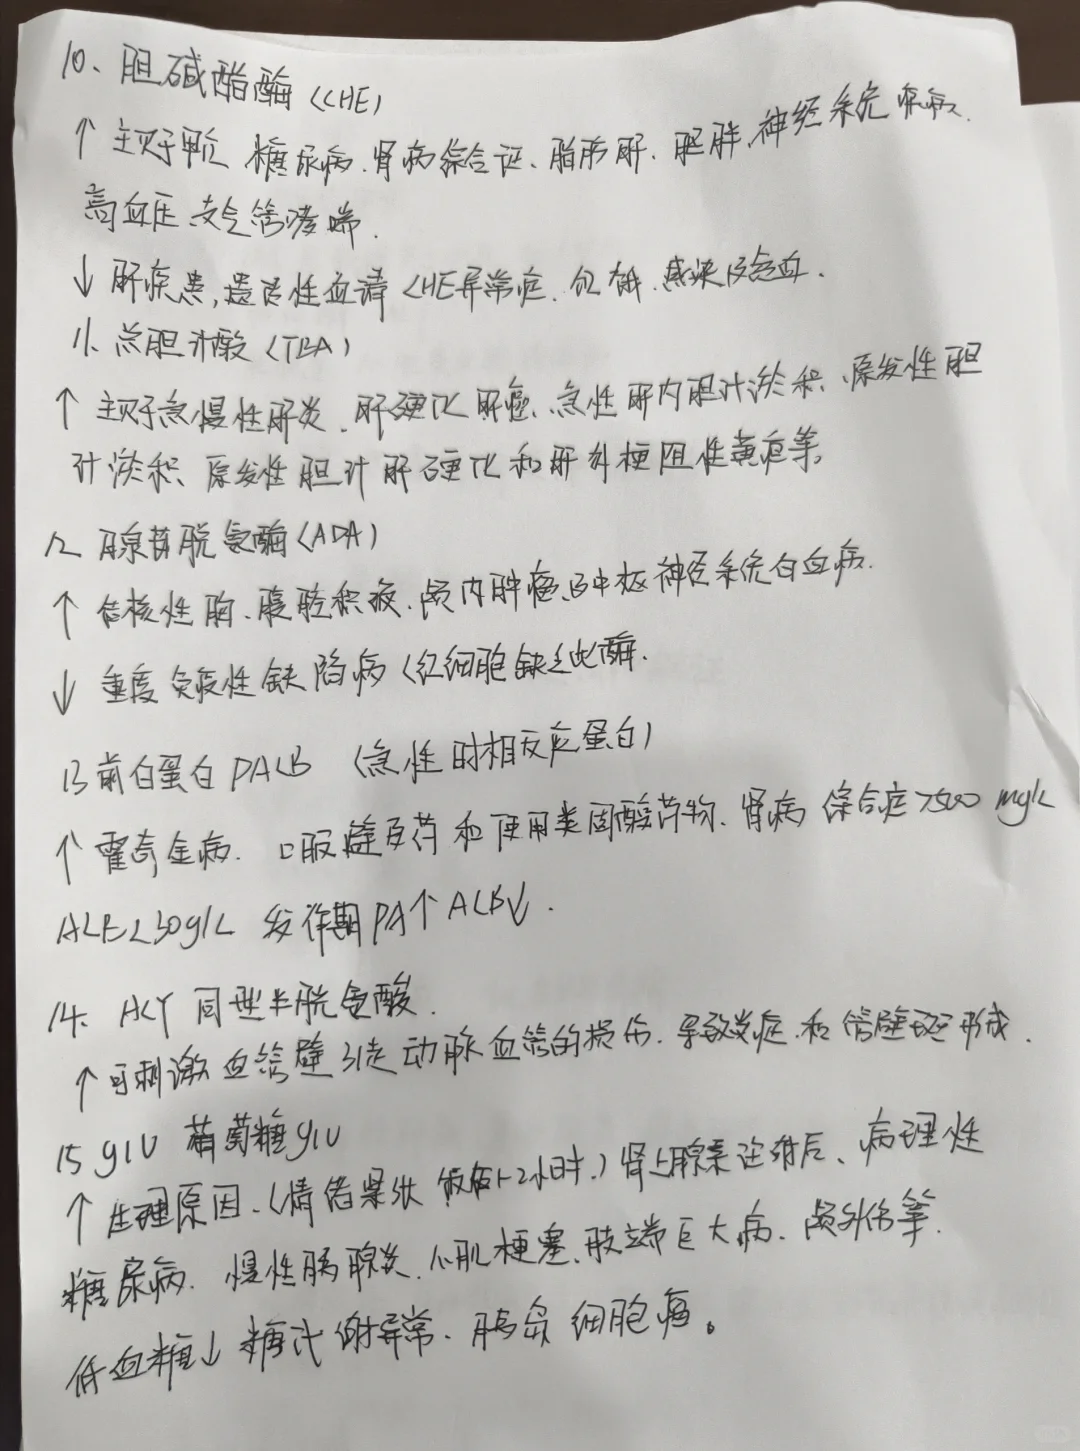 10、胆碱酯酶（CHE）
↑ 主见于甲亢 糖尿病、肾病综合证、脂肪肝、肥胖、神经系统疾病、
高血压、支气管哮喘.
↓ 肝疾患,遗传性血清CHE异常症、饥饿、感染及贫血.
11、总胆汁酸（TBA）
↑ 主见于急慢性肝炎、肝硬化 肝癌、急性肝内胆汁淤积、原发性胆
汁淤积、原发性胆汁肝硬化和肝外梗阻性黄疸等
12 腺苷脱氨酶（ADA）
↑ 结核性胸、腹腔积液、颅内肿瘤及中枢神经系统白血病.
↓ 重度免疫性缺陷病（红细胞缺乏此酶.
13 前白蛋白PALB （急性时相反应蛋白）
↑ 霍奇金病. 口服避孕药和使用类固醇药物、肾病 综合症>500 mg/L
ALB<30g/L 发作期PA↑ALB↓.
14、HCY 同型半胱氨酸.
↑可刺激血管壁引起动脉血管的损伤.导致炎症.和管壁斑形成.
15 glu 葡萄糖glu
↑ 生理原因、(情绪紧张 饭后1-2小时.)肾上腺素注射后、病理性
糖尿病、慢性胰腺炎、心肌梗塞、肢端巨大病、颅外伤等.
低血糖↓ 糖代谢异常. 胰岛细胞瘤。